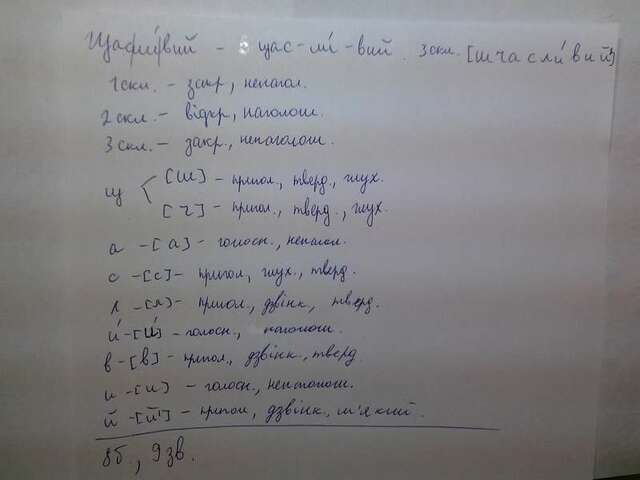 Щасли́вий - щас-ли́-вий. 3 скл. [шчасли́вий']
1 скл. - закр, ненагол.
2 скл. - відкр, наголош.
3 скл. - закр., ненаголош.
щ [ш] - пригол., тверд., глух.
[ч] - пригол., тверд., глух.
а - [а] - голосн., ненагол.
с - [с] - пригол, глух., тверд.
л - [л] - пригол., дзвінк., тверд.
и́ - [и́] - голосн., наголош.
в - [в] - пригол., дзвінк., тверд.
и - [и] - голосн., ненаголош.
й - [й'] - пригол, дзвінк., м'який.
8б., 9зв.